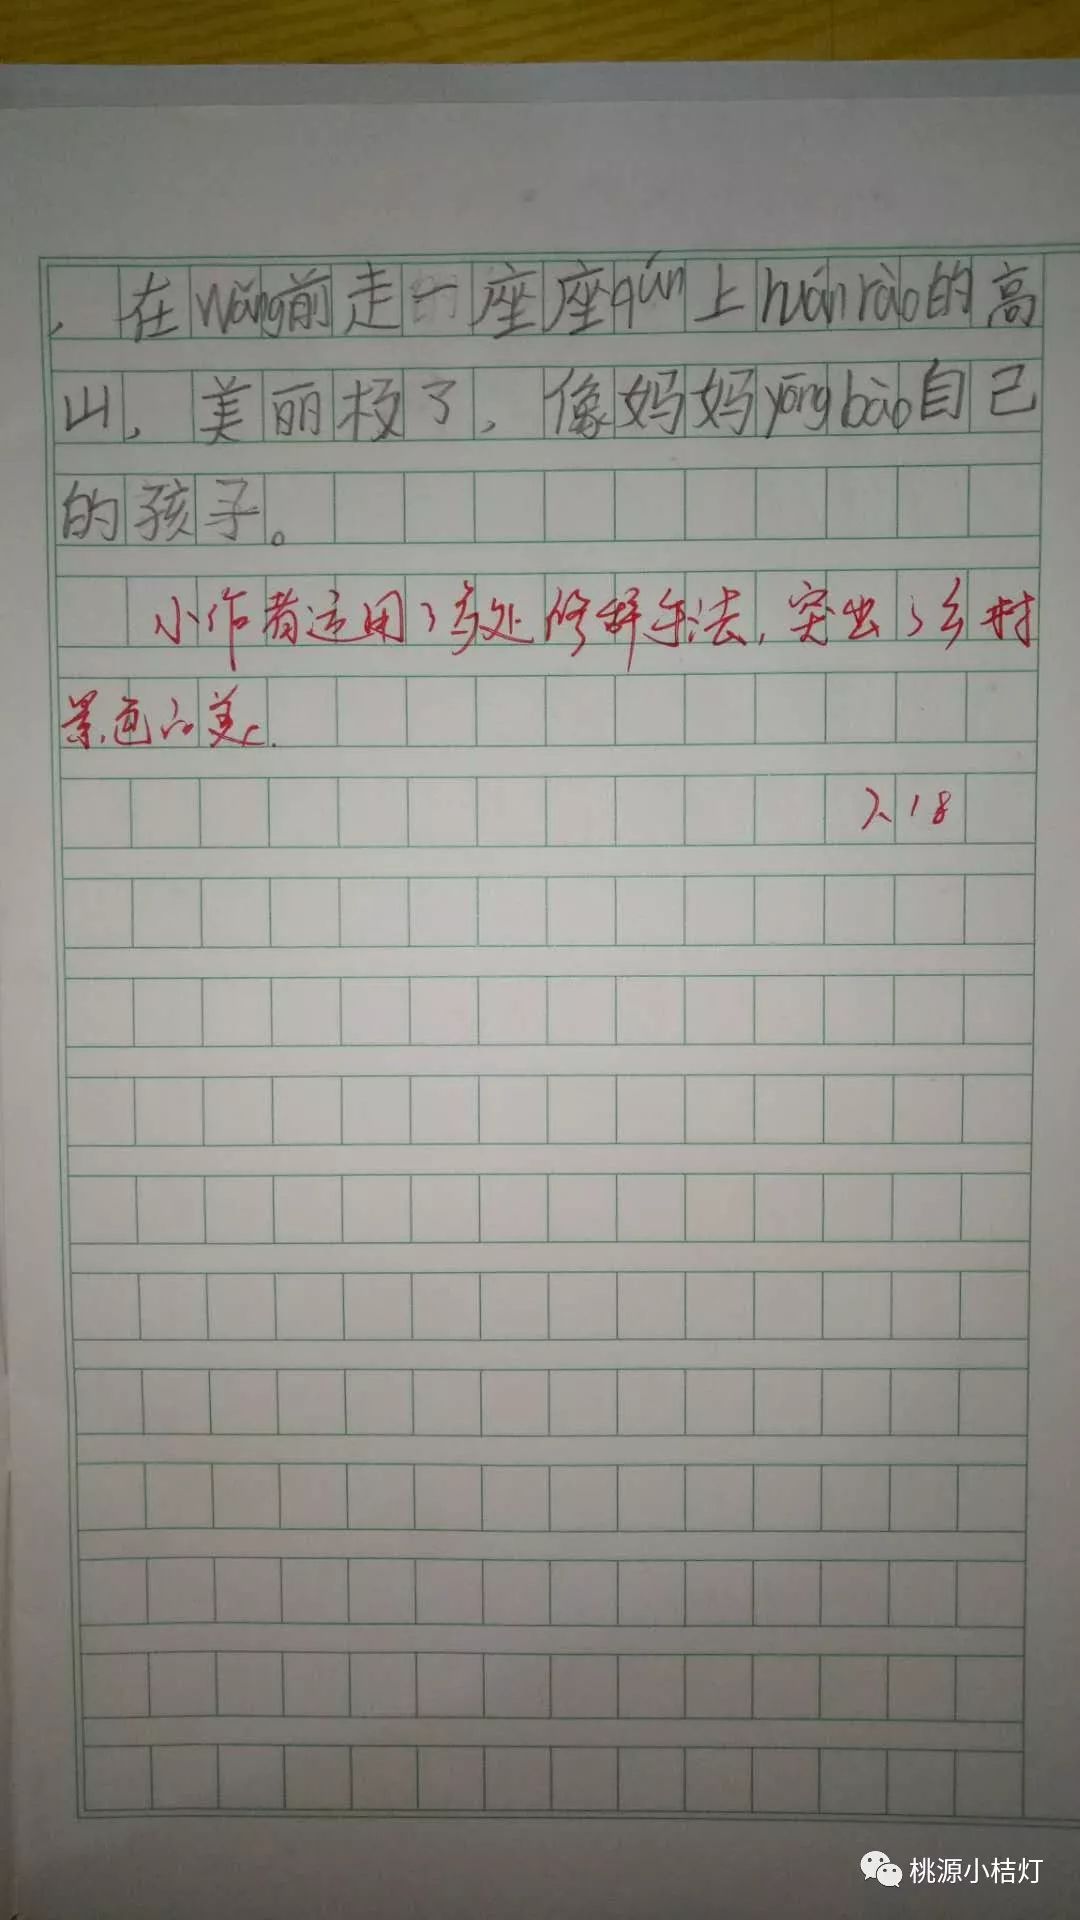 ，在wǎng前走一座座qún上huánrào的高
山，美丽极了，像妈妈yōngbào自己
的孩子。
小作者运用了多处修辞手法，突出了乡村
景色的美。
2.18
桃源小桔灯